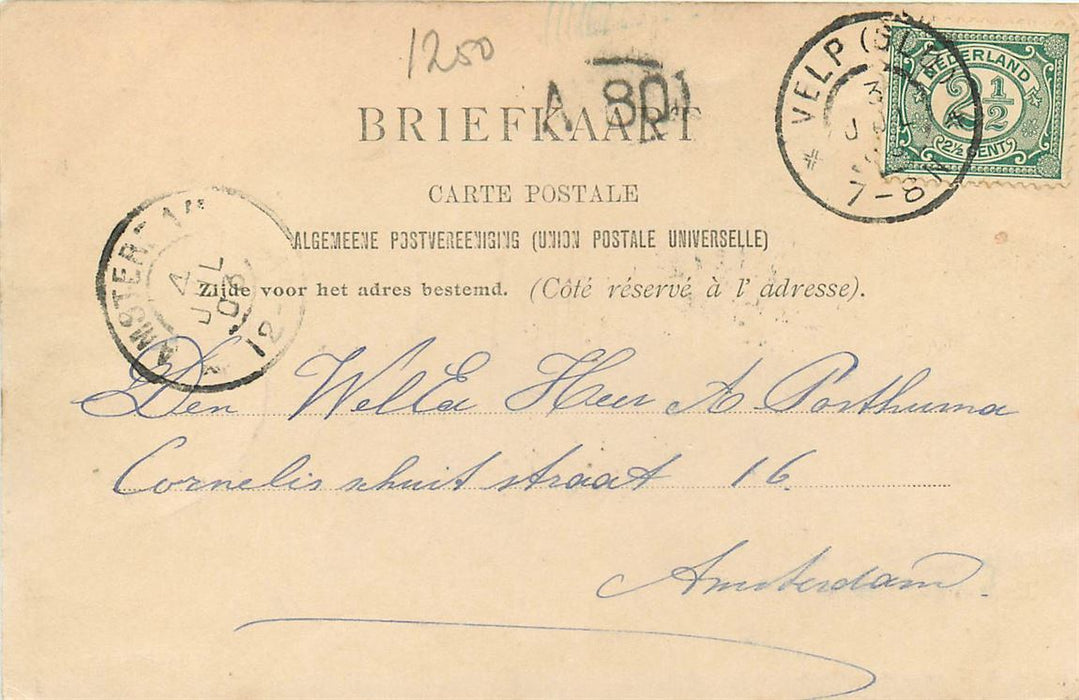 1200
A 80
VELP (GLD.)
3
7-8
NEDERLAND
2½
2½ CENT
BRIEFKAART
CARTE POSTALE
ALGEMEENE POSTVEREENIGING (UNION POSTALE UNIVERSELLE)
Zijde voor het adres bestemd. (Côté réservé à l' adresse).
AMSTERDAM
4
JUL
12-
Den WelEd Heer A. Posthuma
Cornelis schuit straat 16.
Amsterdam.